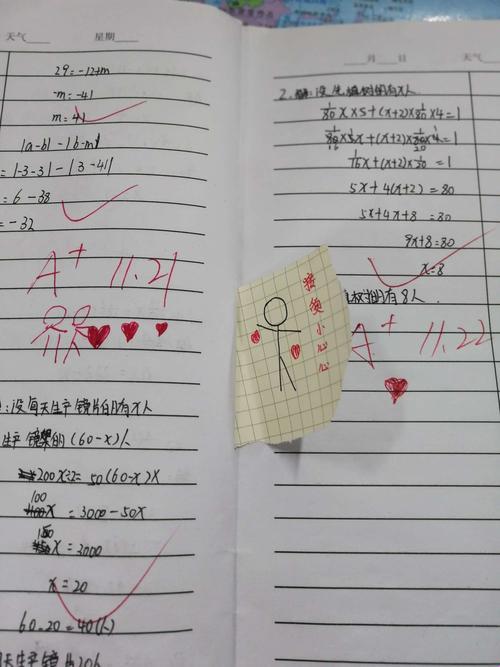 天气 星期
29=-12+m
-m=-41
m=41
|a-b|-|b-m|
=|-3-3|-|3-41|
=6-38
=-32
A+ 11.21
:设每天生产镜片的有x人
生产镜架的(60-x)人
200x÷2=50(60-x)x
100x=3000-50x
150x=3000
x=20
60-20=40(人)
天生产镜
月 日 天气
2. 解:设先植树的有x人
1/80 x×5+(x+2)×1/80×4=1
1/80×5x+(x+2)×1/80×4=1
16 20
1/16x+(x+2)×1/20=1
5x+4(x+2)=80
5x+4x+8=80
9x+8=80
x=8
植树的有8人.
小心心
A+ 11.22